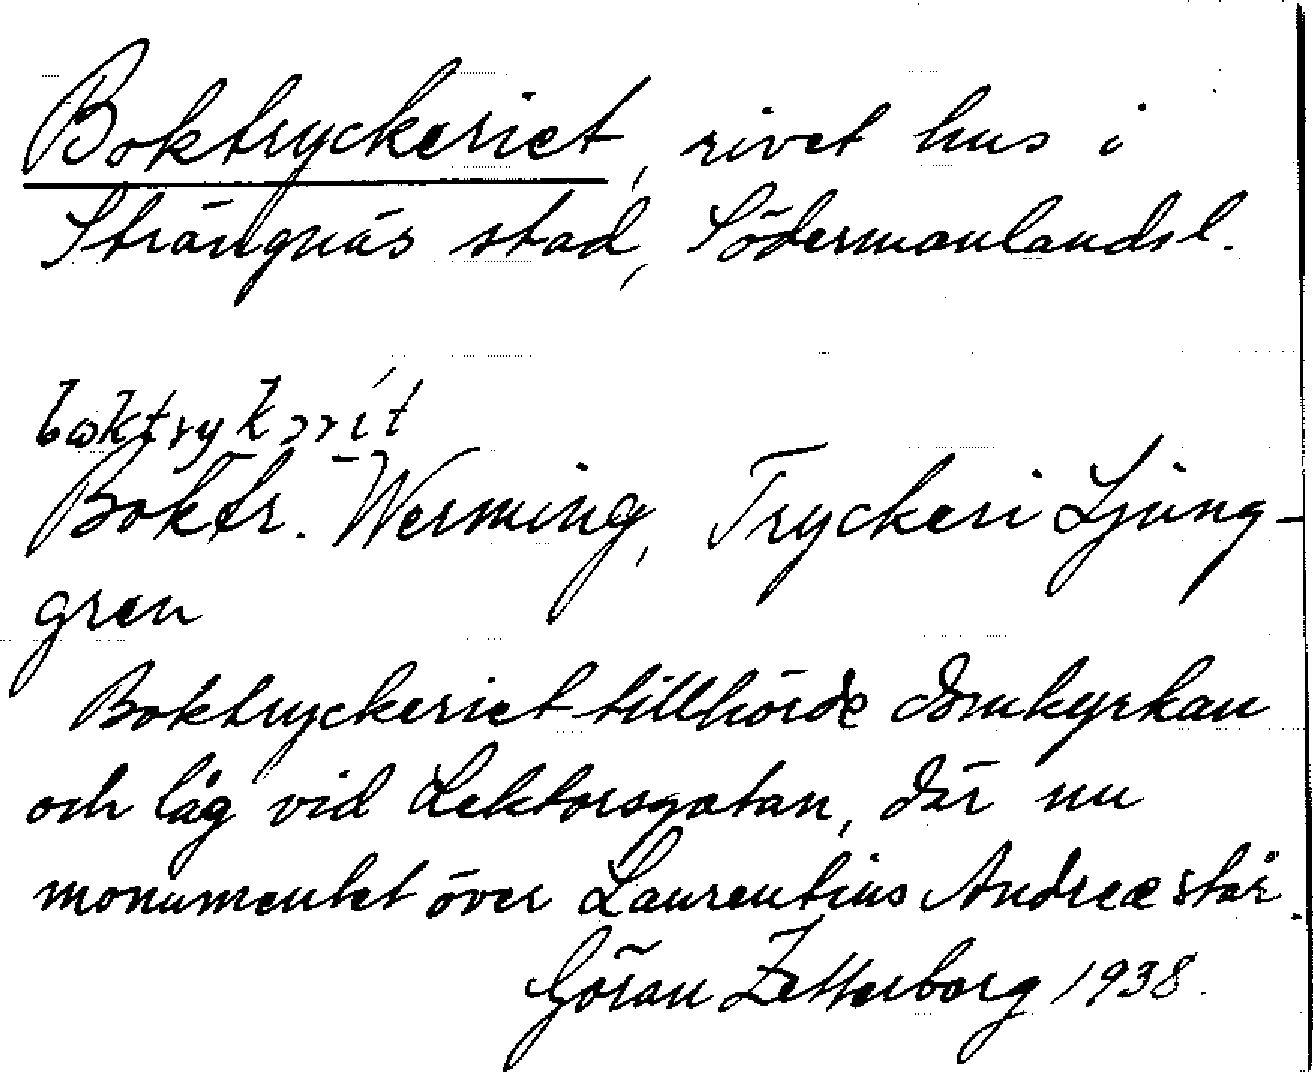 Boktryckeriet, rivet hus i
Strängnäs stad, Södermanlands l.
Boktr. Werming, Tryckeri Ljung-
gren
Boktryckeriet tillhörde domkyrkan
och låg vid Lektorsgatan, där nu
monumentet över Laurentius Andreæ står.
Göran Zetterborg 1938.